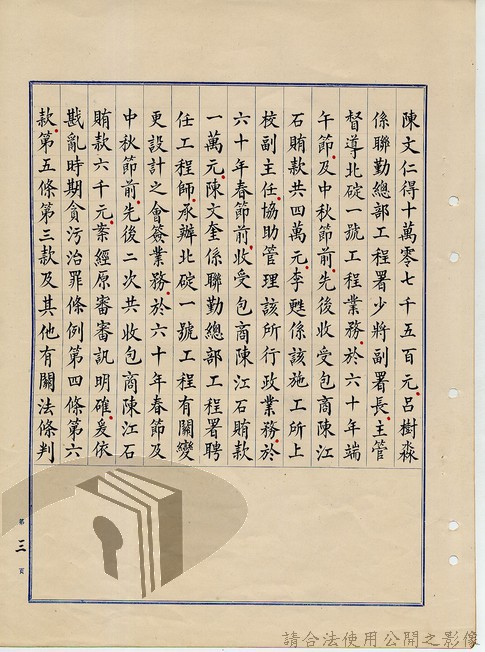 陳文仁得十萬零七千五百元、呂樹淼
係聯勤總部工程署少將副署長、主管
督導北碇一號工程業務、於六十年端
午節、及中秋節前、先後收受包商陳江
石賄款共四萬元、李甦係該施工所上
校副主任、協助管理該所行政業務、於
六十年春節前、收受包商陳江石賄款
一萬元、陳文奎係聯勤總部工程署聘
任工程師、承辦北碇一號工程有關變
更設計之會簽業務、於六十年春節及
中秋節前、先後二次共收包商陳江石
賄款六千元、案經原審審訊明確、爰依
戡亂時期貪污治罪條例第四條第六
款、第五條第三款及其他有關法條判
第三頁
請合法使用公開之影像